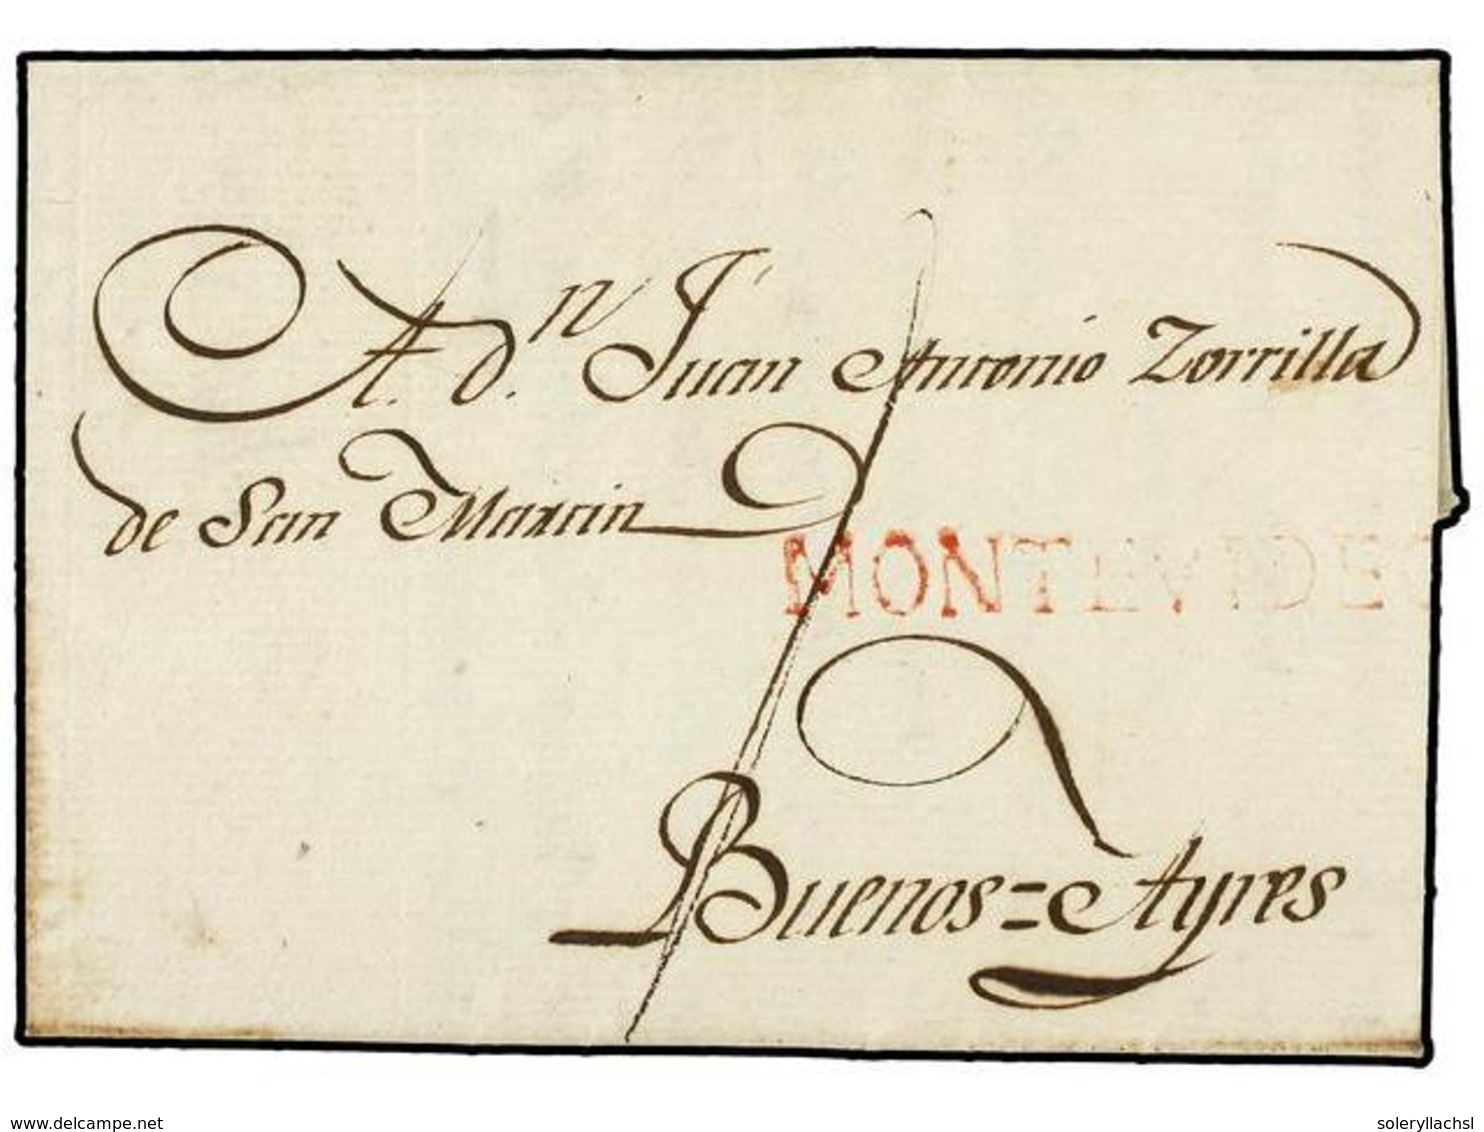 A. d.n Juan Antonio Zorrilla
de San Martin
MONTEVIDEO
Buenos=Ayres
delcampe.net
soleryllachsl